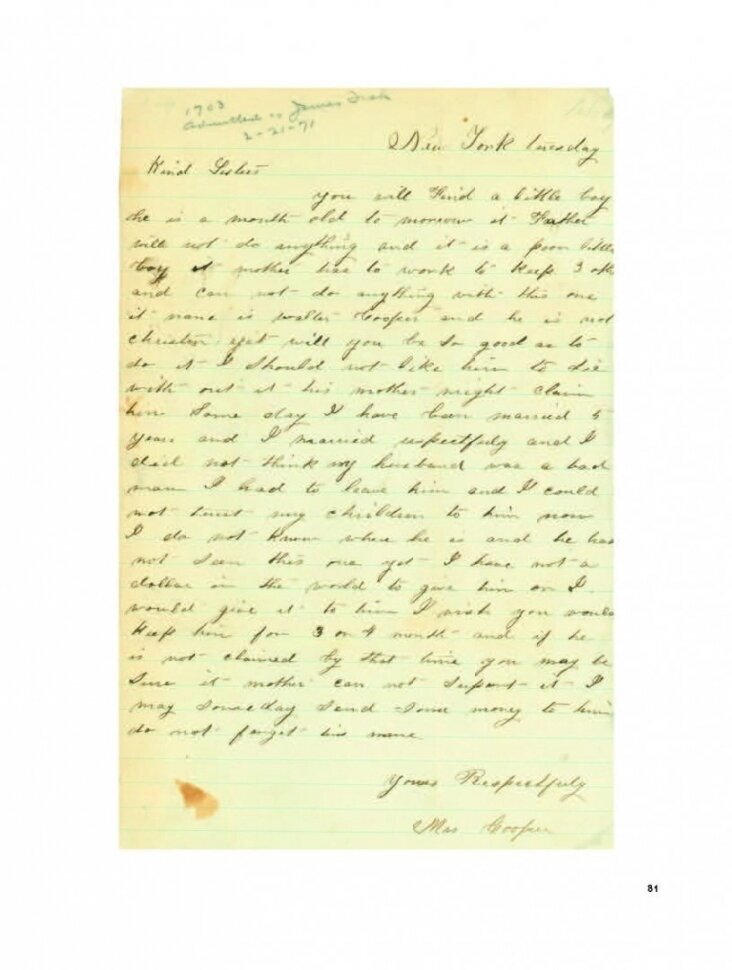 1703
Admitted as James Fisk
2-21-71
New York tuesday
Kind Sisters
you will find a little boy
he is a month old to morrow it Father
will not do anything and it is a poor little
boy it mother has to work to keep 3 oth
and can not do anything with this one
it name is walter Cooper and he is not
christen yet will you be so good as to
do it I Should not like him to die
with out it his mother might claim
him Some day I have been married 5
years and I married respectfuly and I
did not think my husband was a bad
man I had to leave him and I could
not trust my children to him now
I do not know where he is and he has
not seen this one yet I have not a
dollar in the world to give him or I
would give it to him I wish you would
keep him for 3 or 4 month and if he
is not claimed by that time you may be
Sure it mother can not Support it I
may Someday Send Some money to him
do not forget his name
Yours Respectfuly
Mrs Cooper
81